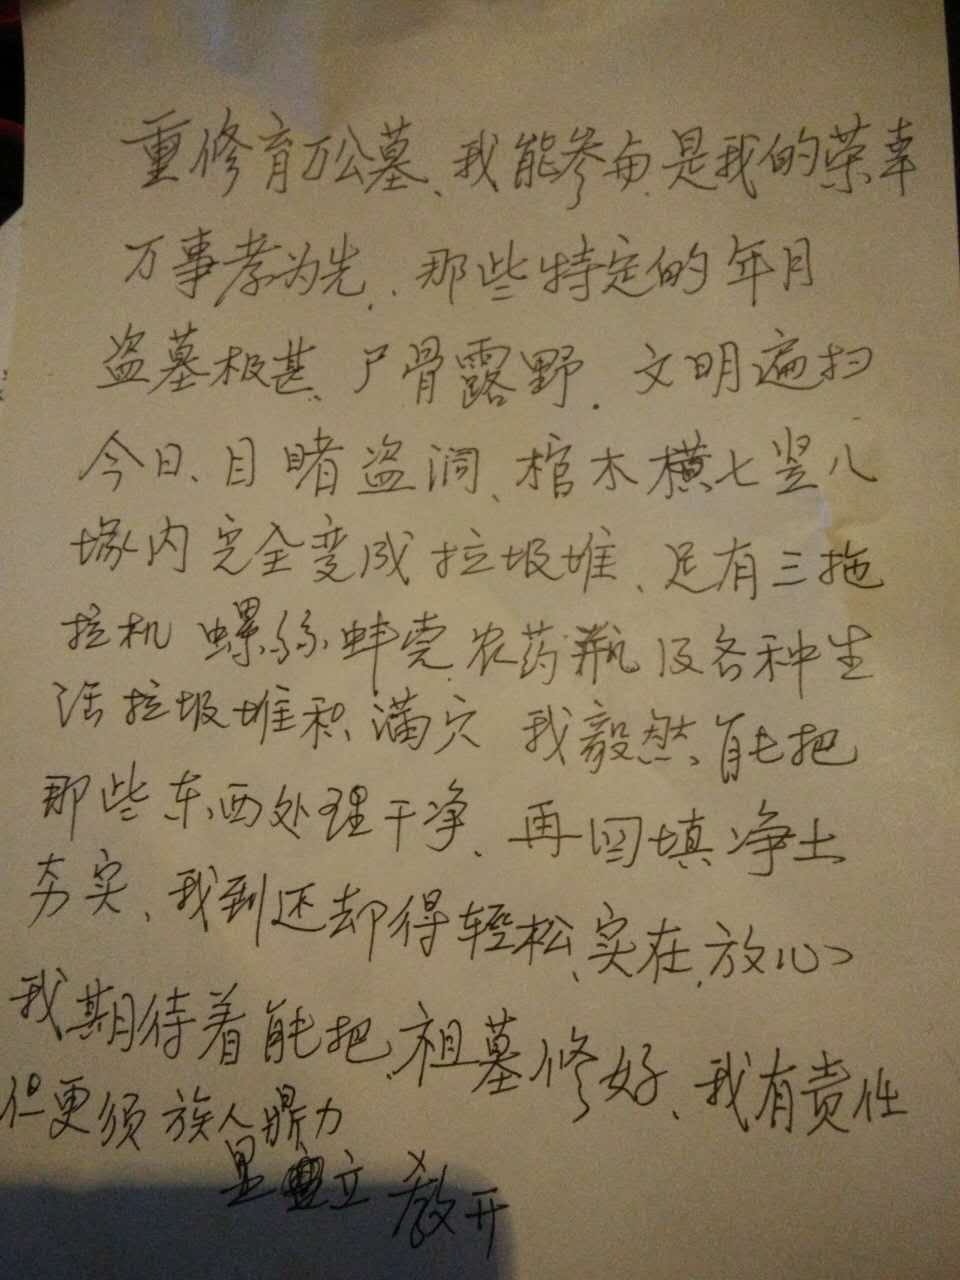 重修育万公墓、我能参与、是我的荣幸
万事孝为先、那些特定的年月
盗墓极甚、尸骨露野. 文明遍扫
今日、目睹盗洞、棺木横七竖八
塚内完全变成垃圾堆、足有三拖
拉机 螺丝蚌壳 农药瓶及各种生
活垃圾堆积满穴 我毅然、能把
那些东西处理干净、再回填净土
夯实、我到还却得轻松、实在、放心
我期待着能把祖墓修好、我有责任
但更须族人鼎力
立 教开